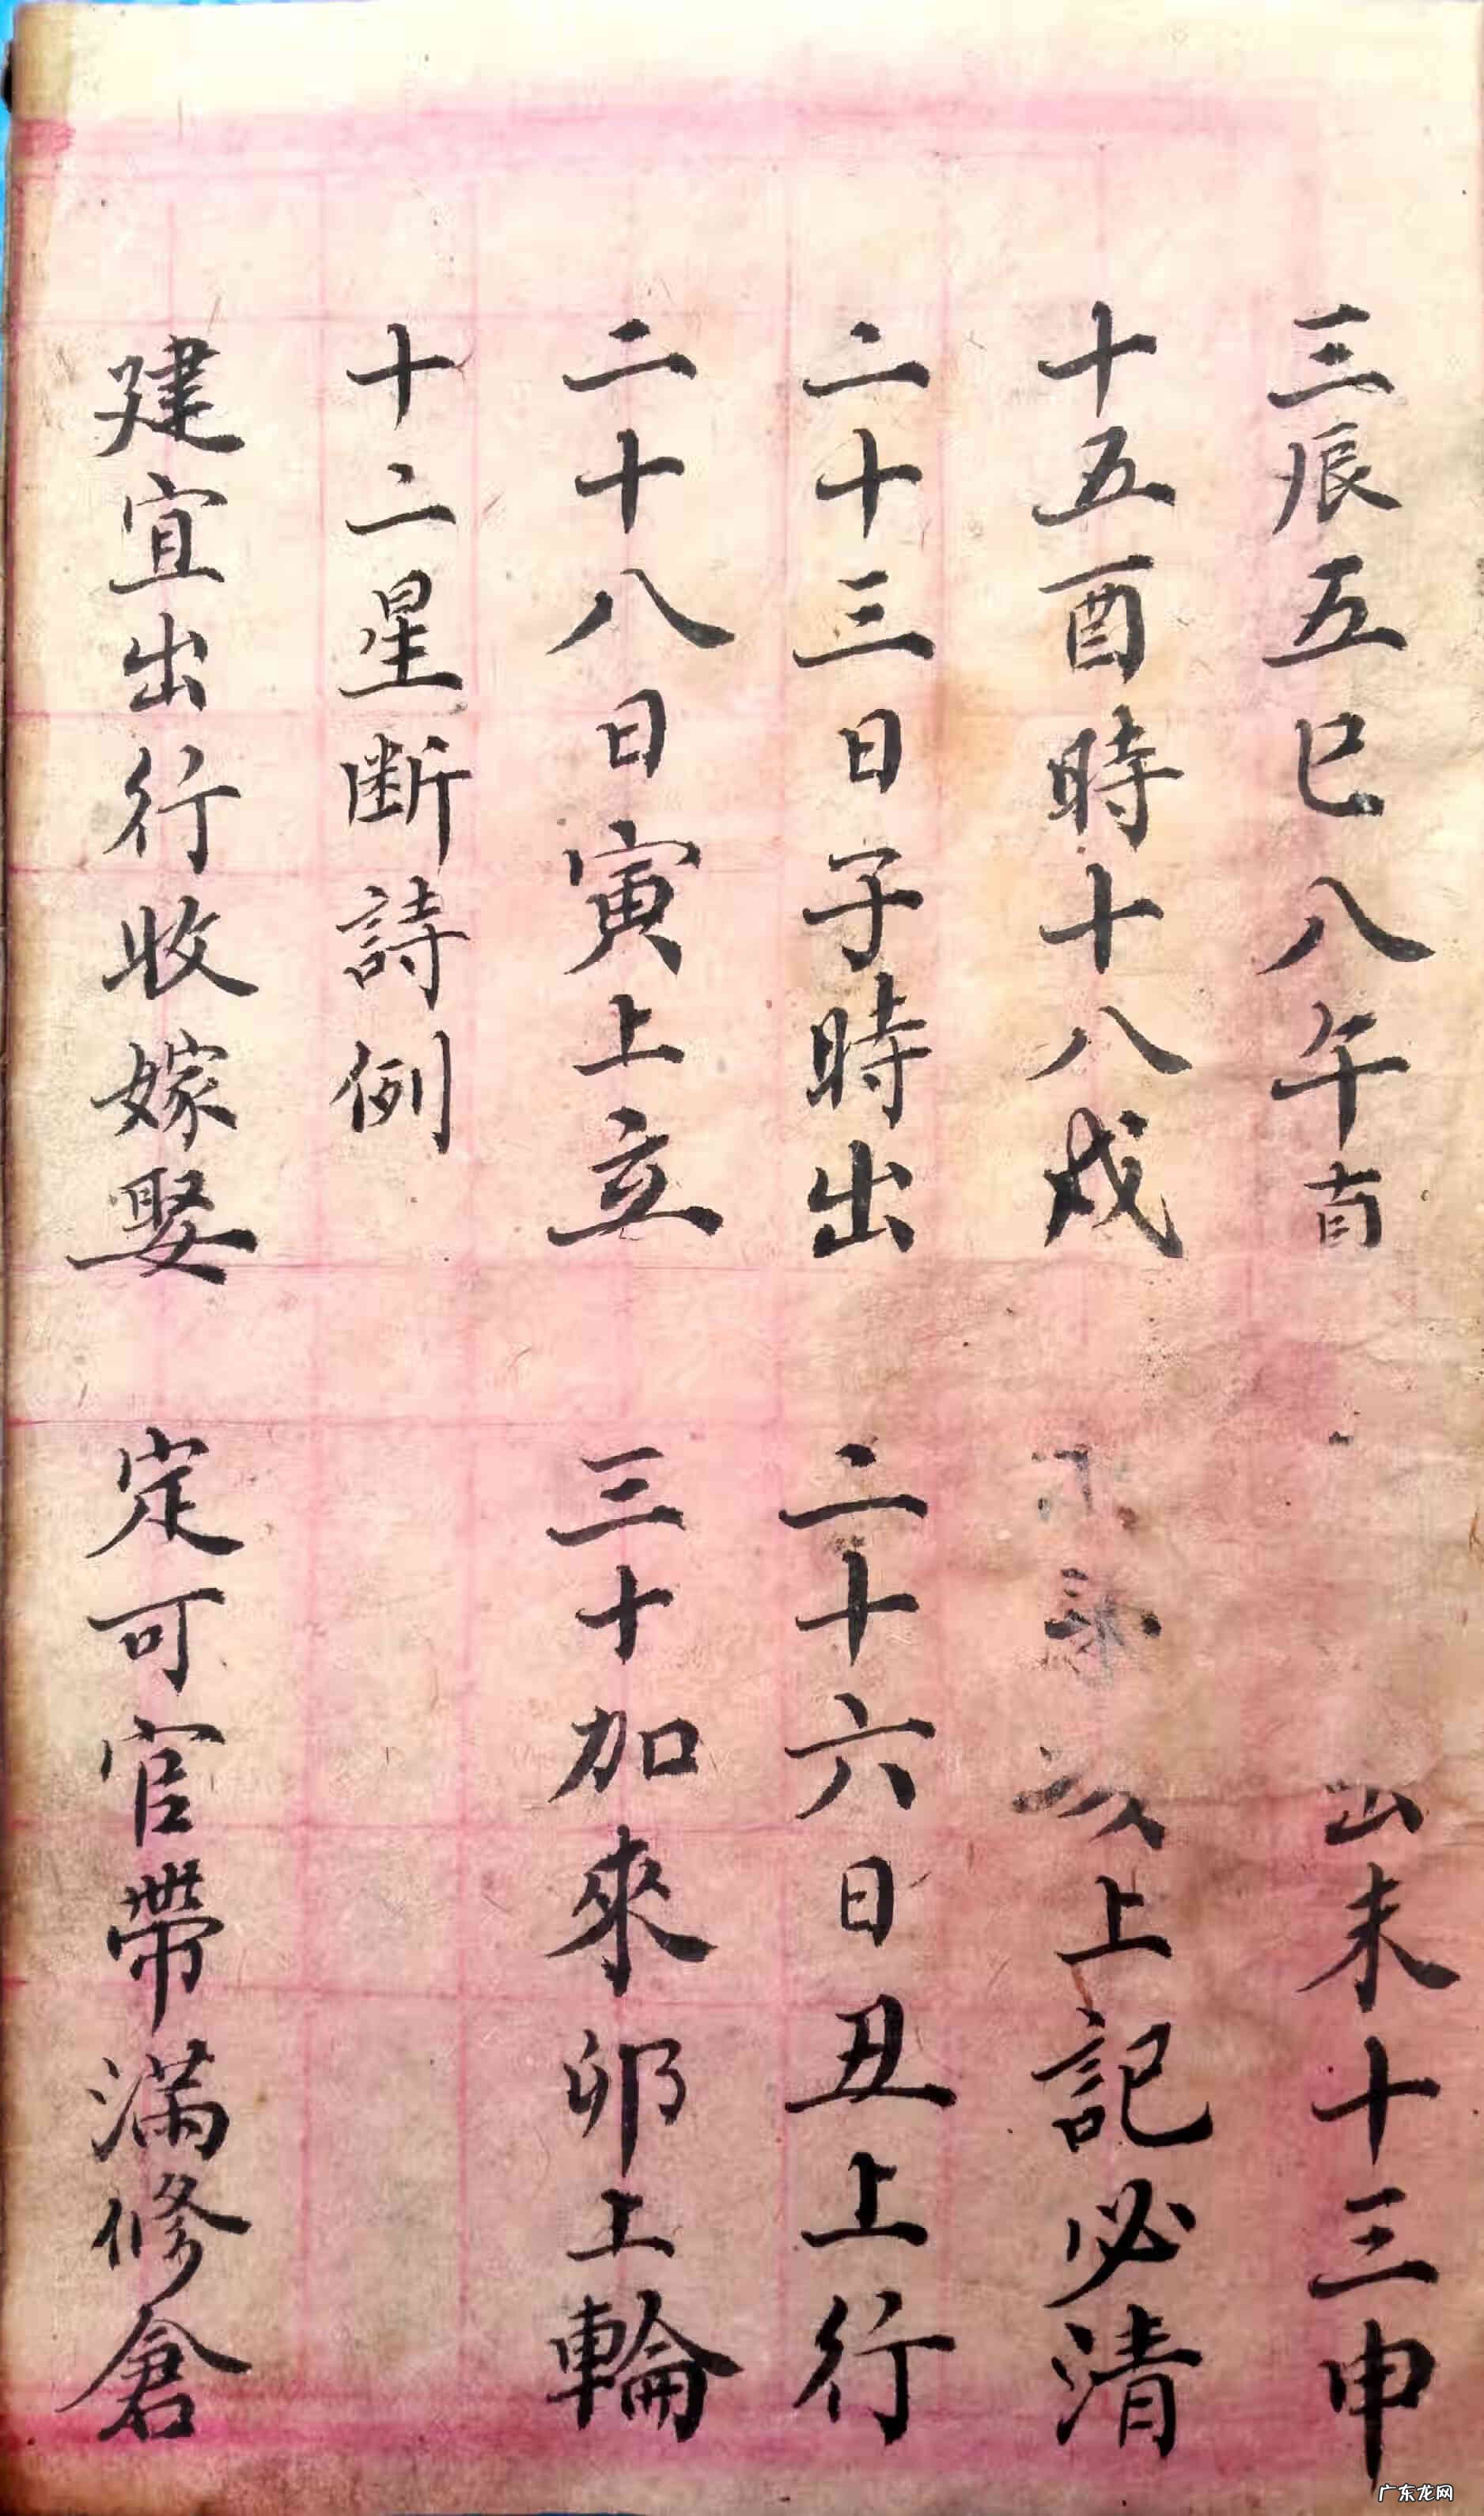 三辰五巳八午直 未十三申
十五酉時十八戌 上記必清
二十三日子時出 二十六日丑上行
二十八日寅上立 三十加來卯上輪
十二星断詩例
建宜出行收嫁娶 定可官帶滿修倉
广东龙网